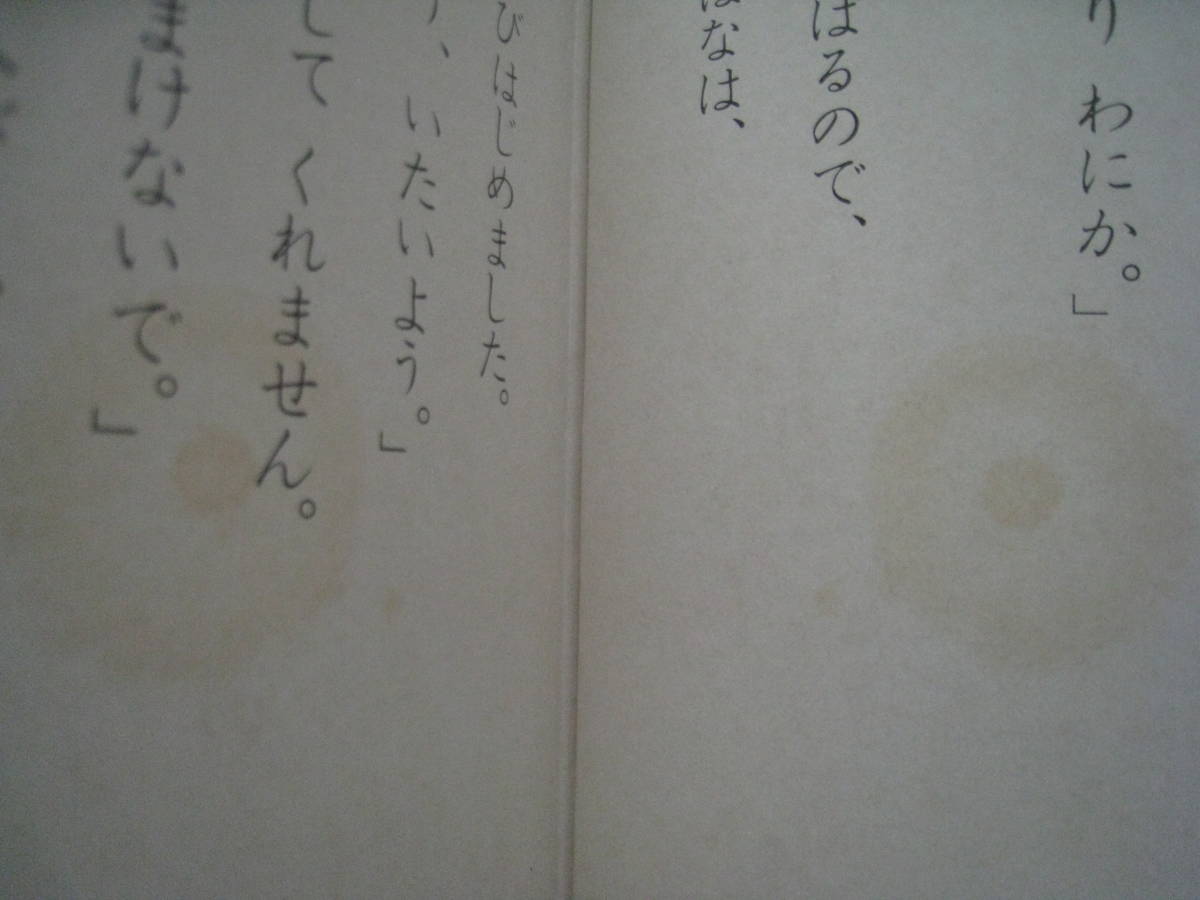 り わにか。」
はるので、
はなは、
びはじめました。
う、いたいよう。」
して くれません。
まけないで。」